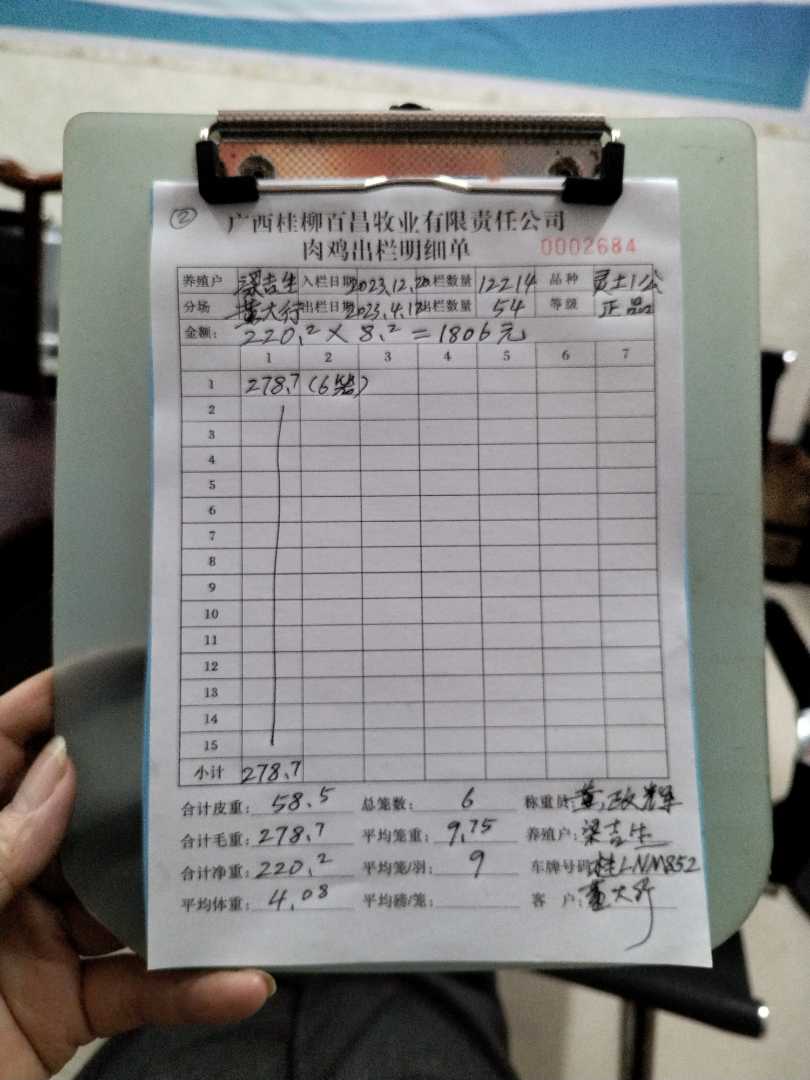 ② 广西桂柳百昌牧业有限责任公司
肉鸡出栏明细单 0002684
养殖户 梁吉生 入栏日期 2023.12.20 出栏数量 12214 品种 灵土1公
分场 黄大行 出栏日期 2023.4.12 出栏数量 54 等级 正品
金额: 220.2 × 8.2 = 1806元
1 2 3 4 5 6 7
1 278.7 (6笼)
2
3
4
5
6
7
8
9
10
11
12
13
14
15
小计 278.7
合计皮重: 58.5 总笼数: 6 称重员: 黄政辉
合计毛重: 278.7 平均笼重: 9.75 养殖户: 梁吉生
合计净重: 220.2 平均笼/羽: 9 车牌号码: 桂LNM852
平均体重: 4.08 平均磅/笼: 客 户: 黄大行